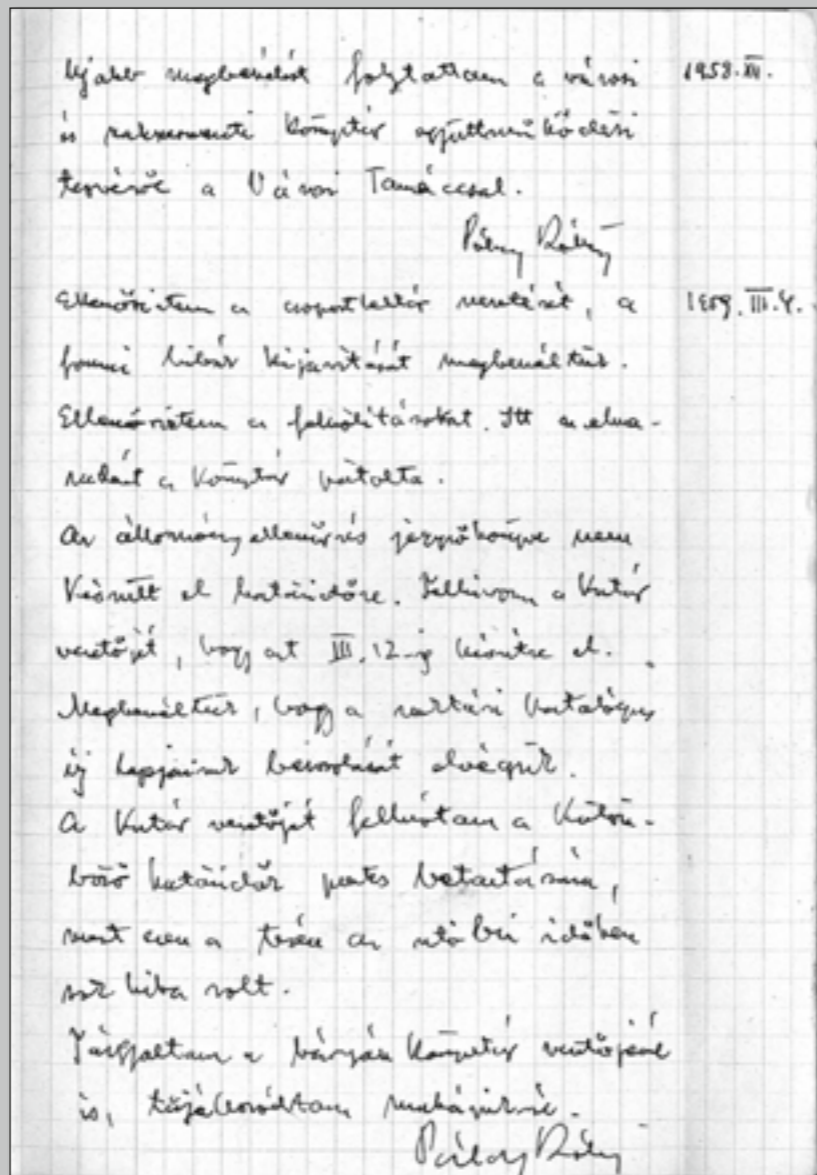 Ujabb megbeszélést folytattam a városi 1958. XII.
és szakszervezeti könyvtár együttműködési
tervéről a Városi Tanáccsal.
Ellenőriztem a csoportleltár vezetését, a 1959. III. 4.
formai hibák kijavítását megbeszéltük.
Ellenőriztem a felszólításokat. Itt az elma-
radást a könyvtár pótolta.
Az állományellenőrzés jegyzőkönyve nem
készült el határidőre. Felhívom a kvtár
vezetőjét, hogy azt III. 12-ig készítse el.
Megbeszéltük, hogy a raktári katalógus
új lapjainak beosztását elvégzik.
A kvtár vezetőjét felhívtam a külön-
böző határidők pontos betartására,
mert ezen a téren az utóbbi időben
sok hiba volt.
Tárgyaltam a bányász könyvtár vezetőjével
is, tájékozódtam munkájukról.